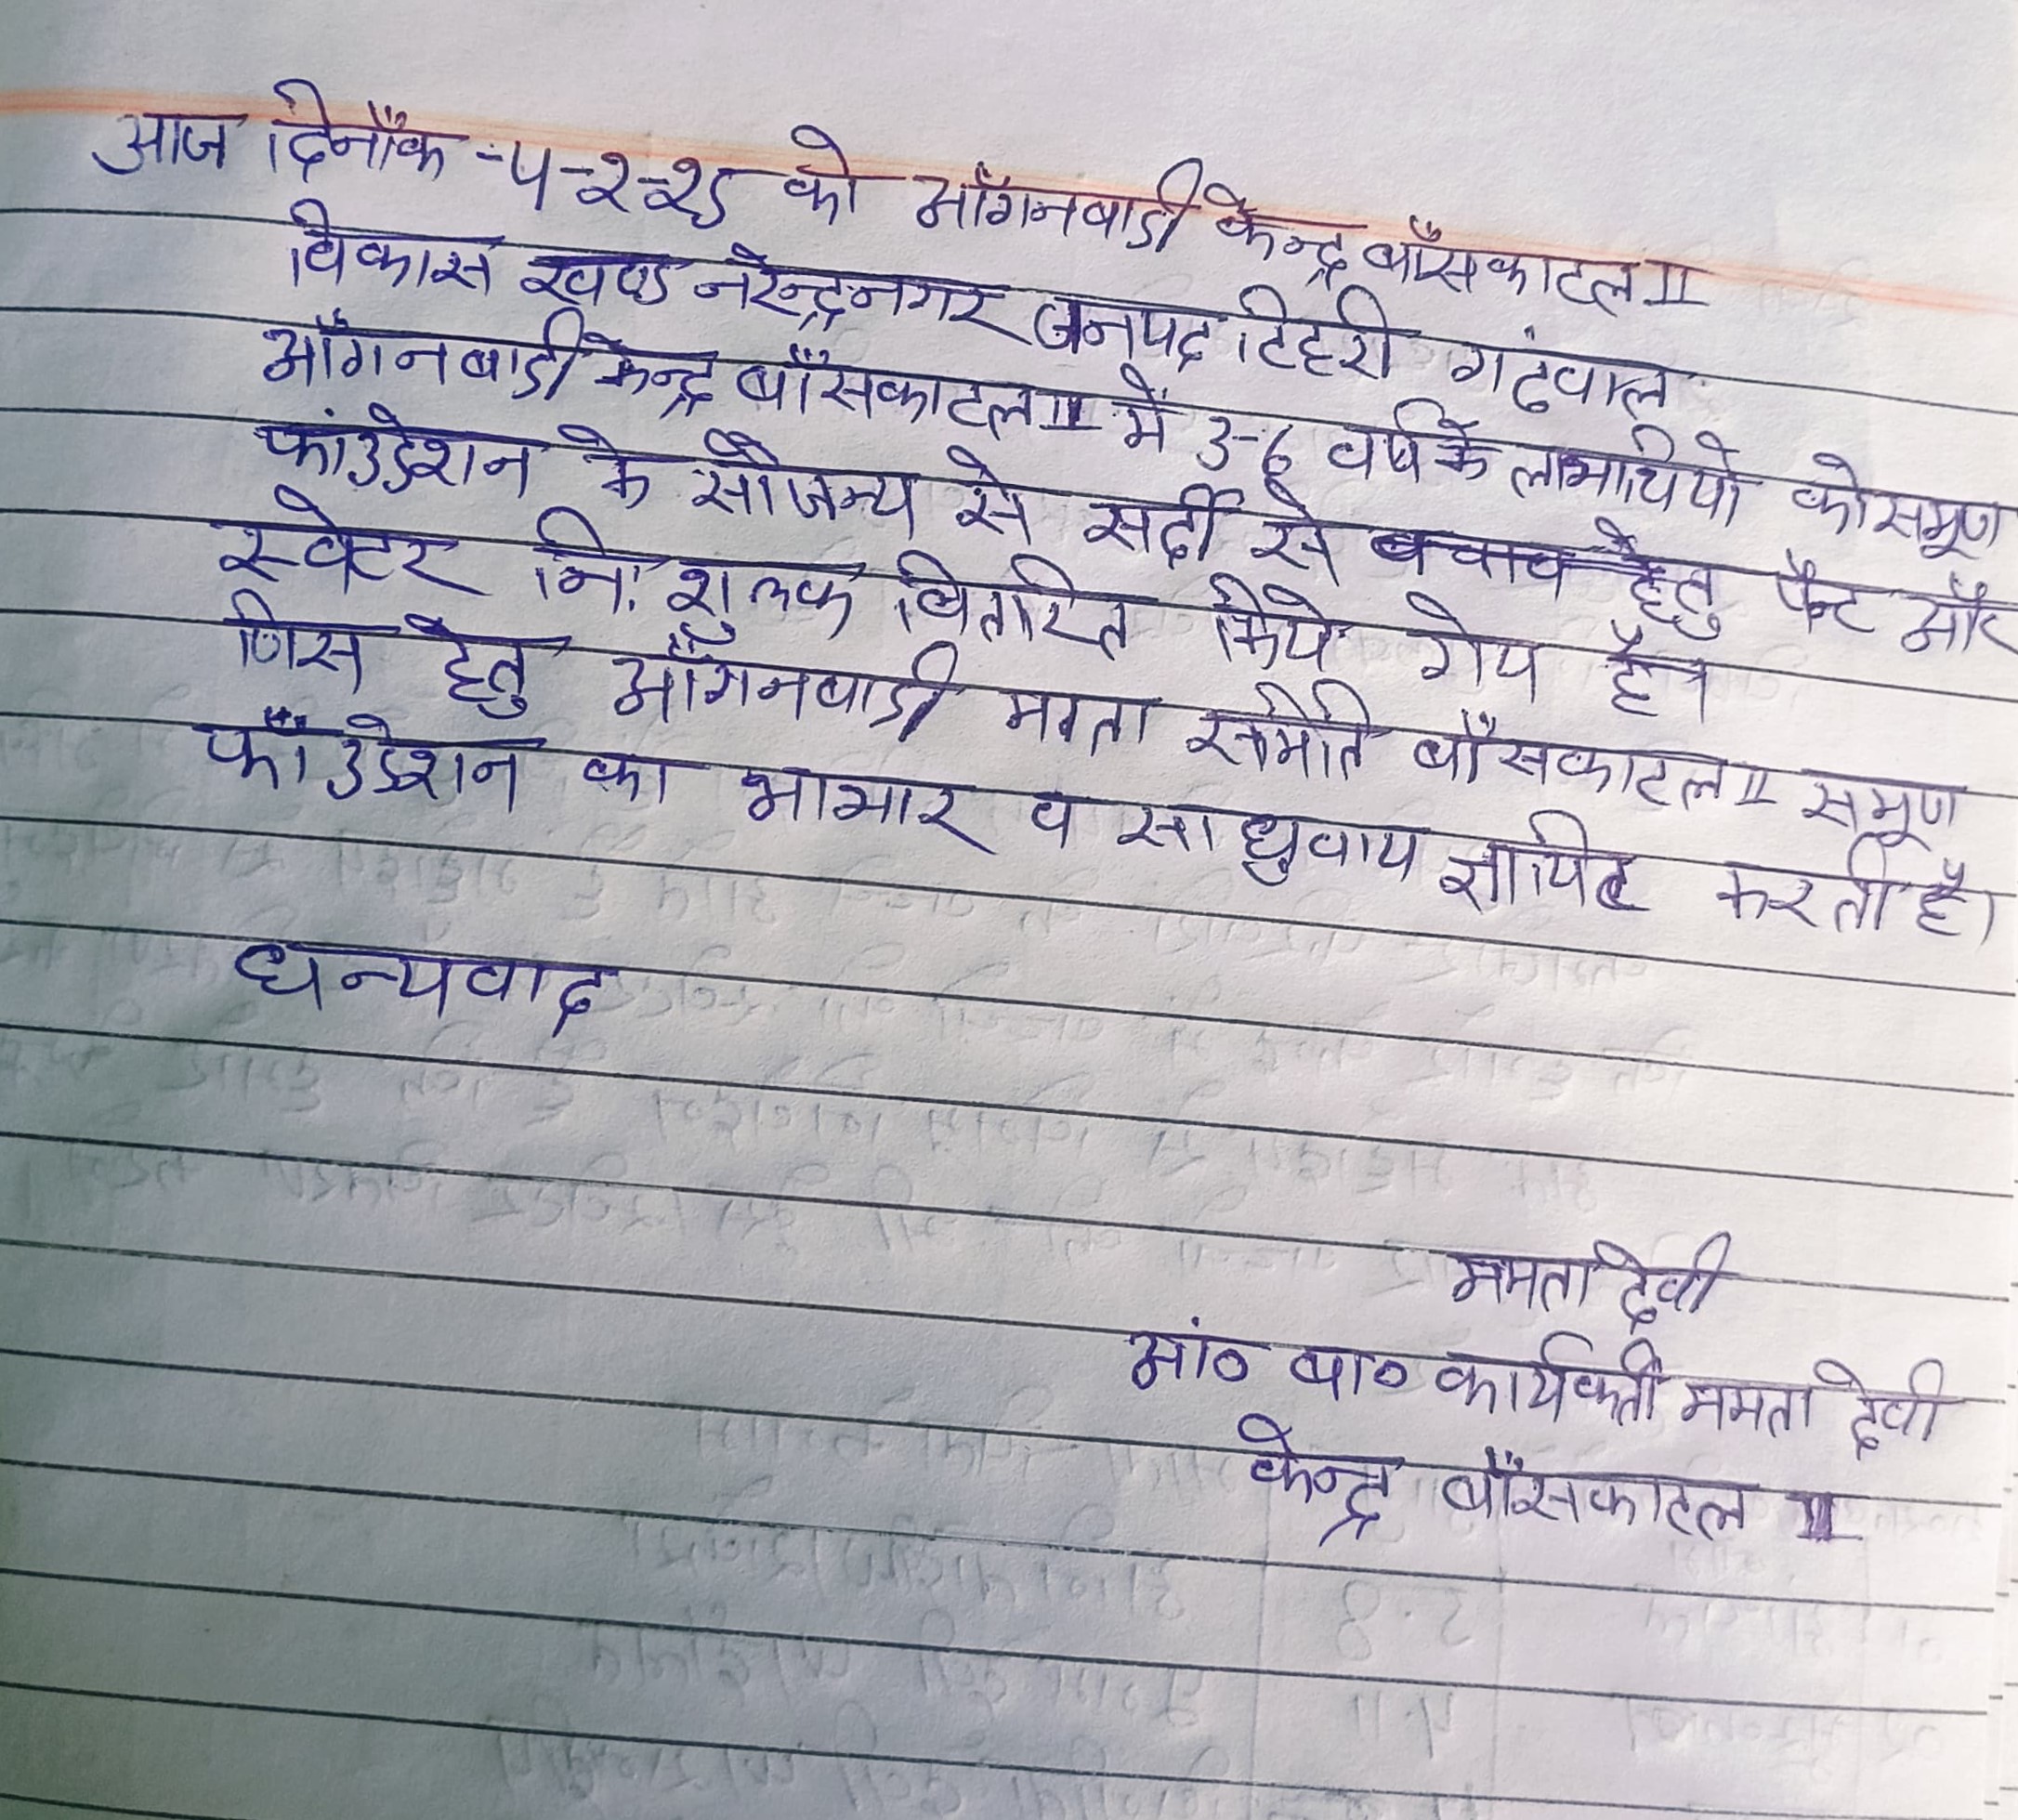 आज दिनाँक -५-२-२६ को आँगनबाडी केन्द्र बाँसकाटल II
विकास खण्ड नरेन्द्रनगर जनपद टिहरी गंढवाल
आँगनबाडी केन्द्र बाँसकाटल II में 3-6 वर्ष के लाभार्थियो को समूण
फांउडेशन के सौजन्य से सर्दी से बचाव हेतु पैन्ट और
स्वेटर नि: शुल्क वितरित किये गये है।
जिस हेतु आँगनवाडी माता समिति बाँसकाटल II समूण
फाँउडेशन का आभार व साधुवाय ज्ञापित करती है।
धन्यवाद
ममता देवी
आं० बा० कार्यकर्ती ममता देवी
केन्द्र बाँसकाटल II